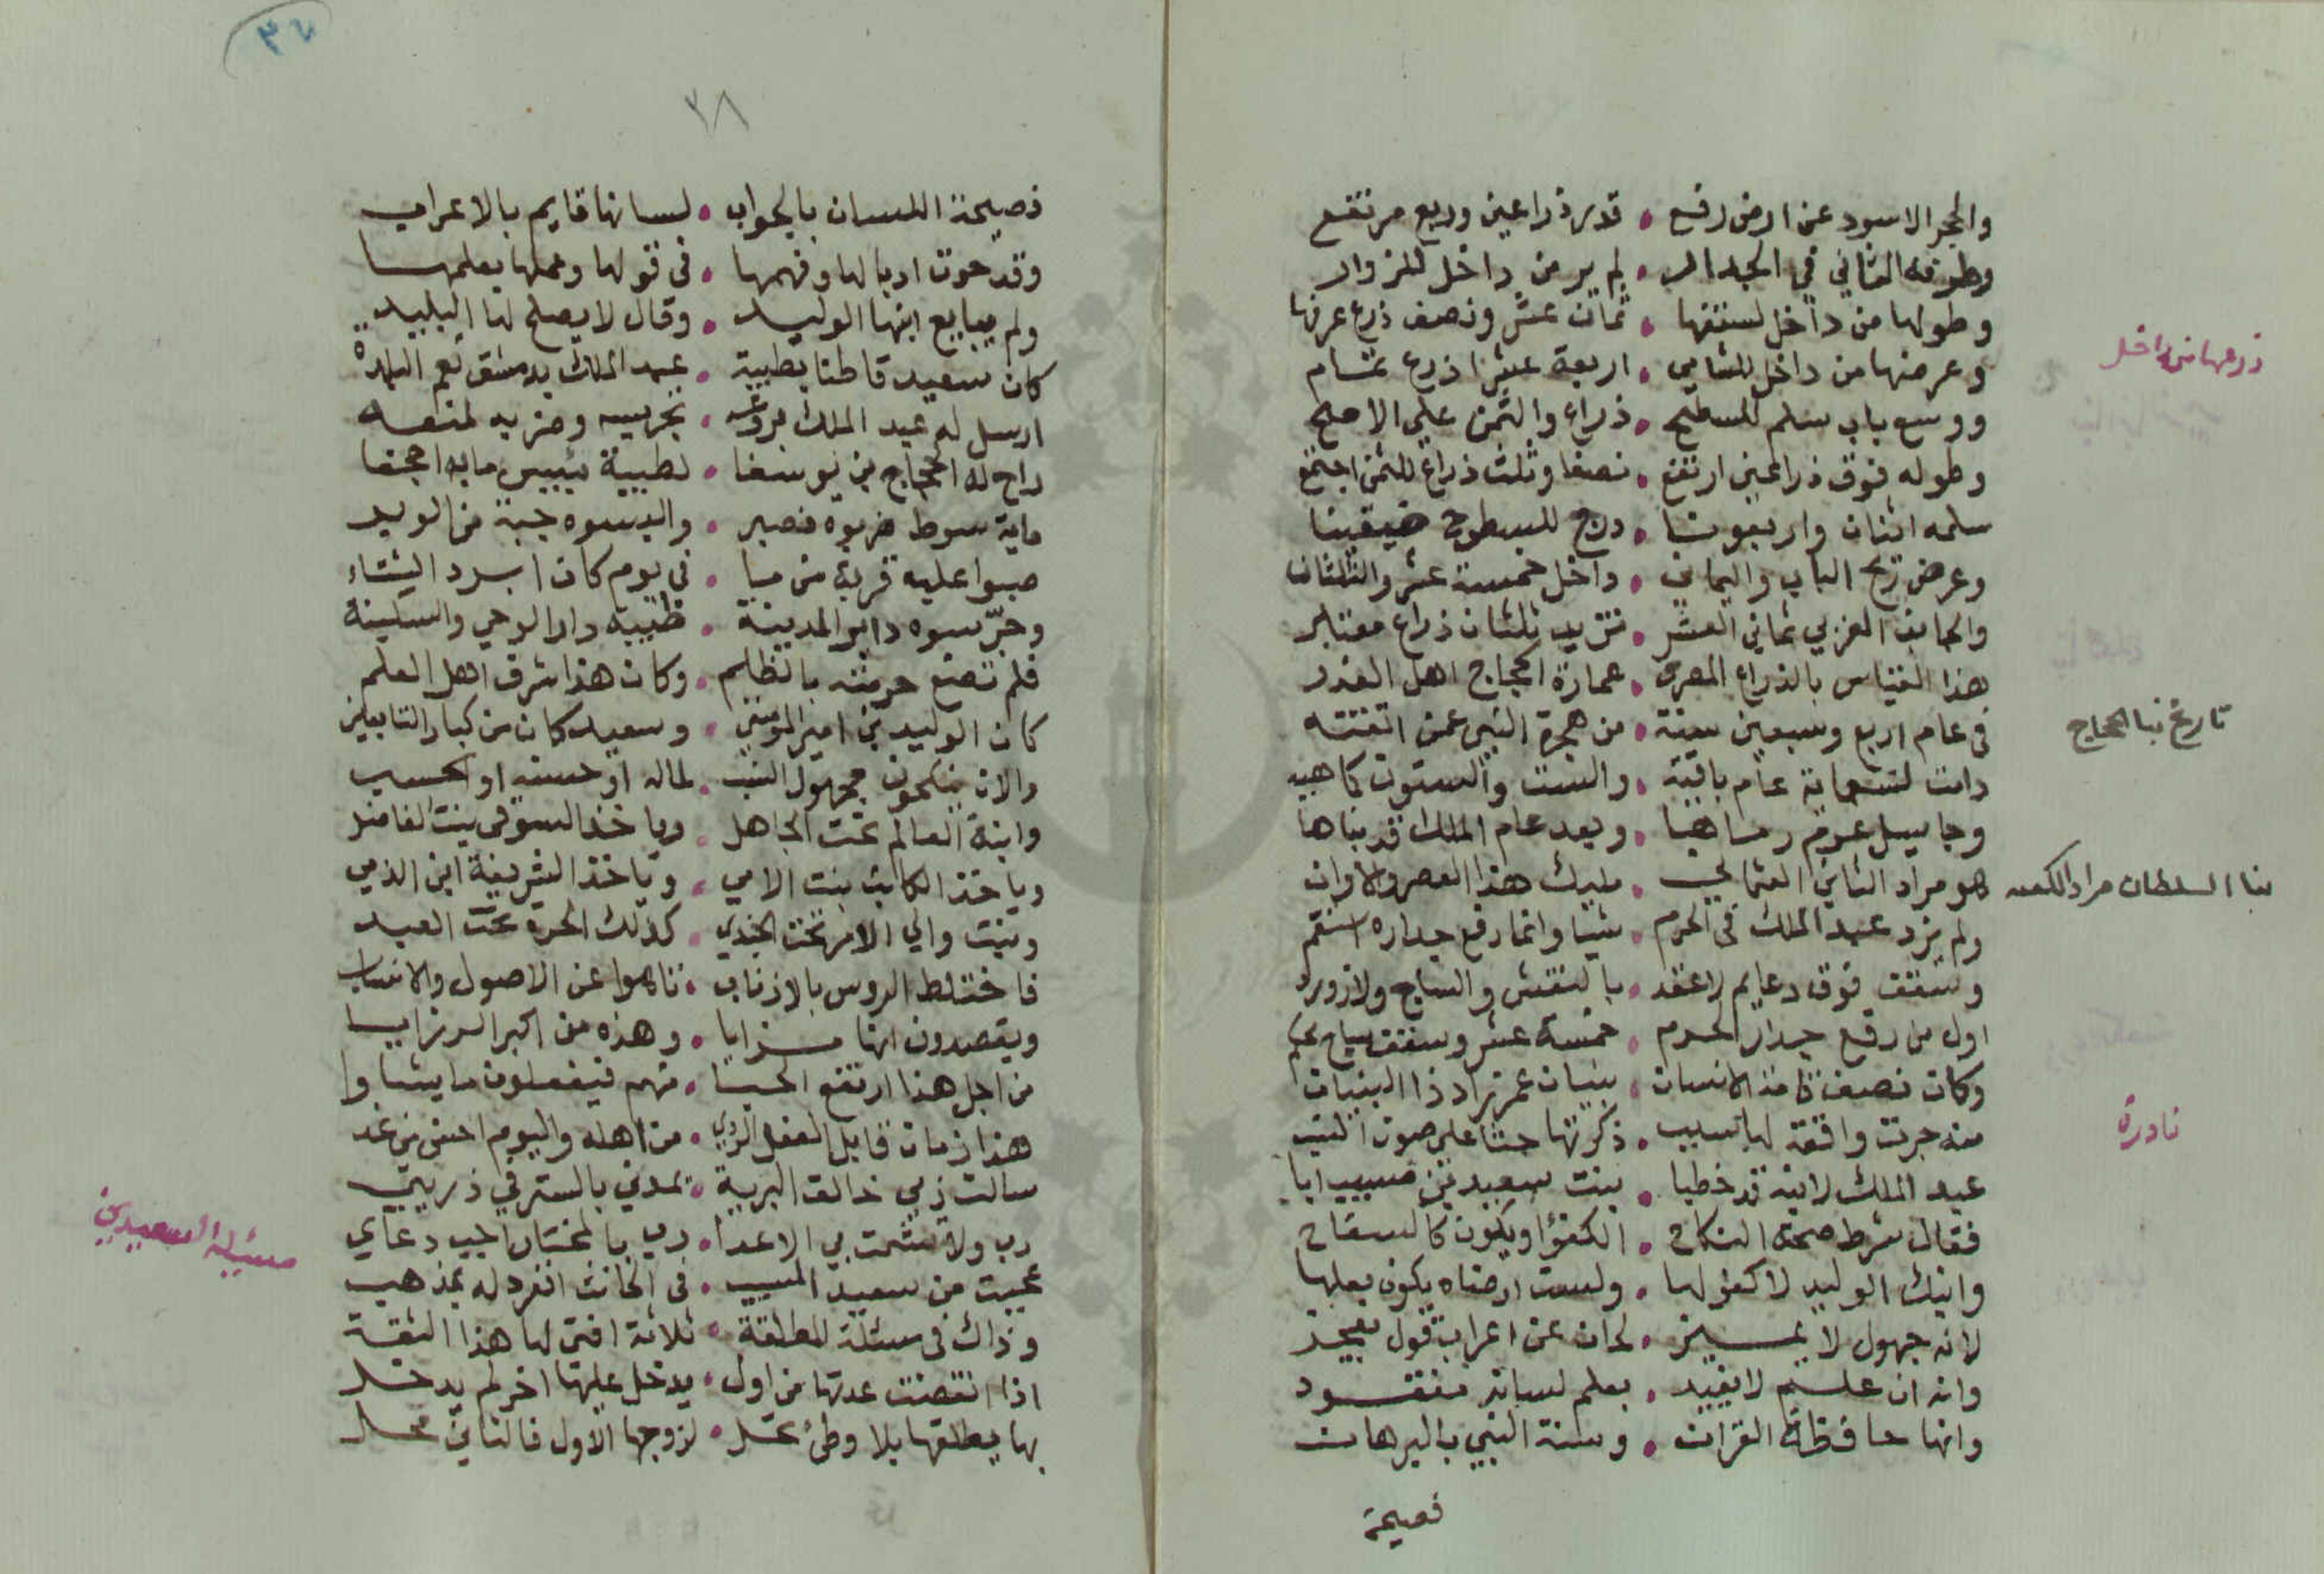 والحجر الاسود عن ارض رفع • قدر ذراعين وربع مرتفع
وطوقه الثاني في الجدار • لم ير من داخل للزوار
وطولها من داخل لسقفها • ثمان عشر ونصف ذرع عرفها
وعرضها من داخل للشامي • اربعة عشر اذرع تمام
ووسع باب سلم للسطح • ذراع والثمن على الاصح
وطوله فوق ذراعين ارتفع • نصفا وثلث ذراع للثمن اجتمع
سلمه اثنان واربعونا • درج للسطوح ضيقينا
وعرض ركن الباب واليماني • داخل خمسة عشر والثلثان
والجانب الغربي ثماني العشر • تزيد ثلثان ذراع معتبر
هذا القياس بالذراع المصري • عمارة الحجاج اهل الغدر
في عام اربع وسبعين سنة • من هجرة النبي عمن اتقنته
دامت لتسعماية عام باقية • والست والستون كاهيه
وجا سيل عرم رماها • وبعد عام الملك قد بناها
هو مراد الثاني العثماني • مليك هذا العصر والاوان
ولم يزد عبد الملك في الحرم • شيا وانما رفع جداره استقم
وسقف فوق دعايم لاعقد • بالنقش والساج ولازورد
اول من رفع جدار الحرم • خمسة عشر وسقف ساج
وكان نصف قامة الانسان • بنيان عمر زاد ذا البنيان
منه جرت واقعة لها سبب • ذكرتها حثا على صون النسب
عبد الملك لابنه قد خطبا • بنت سعيد بن مسيب ابا
فقال شرط صحة النكاح • الكفؤ او يكون كالسفاح
وابنك الوليد لا كفو لها • ولست ارضاه يكون بعلها
لانه جهول لا يميز • لحان عن اعراب قول يعجز
وانه ان علم لا يفيد • بعلم لسانه مفقود
وانها حافظة القران • وسنة النبي بالبرهان
فصيحة
ذرعها من داخل
تاريخ بنا الحجاج
بنا السلطان مراد الكعبه
نادرة
٣٨
فصيحة اللسان بالجواب • لسانها قايم بالاعراب
وقد حوت ادبا لها وفهمها • في قولها وعملها بعلمها
ولم يبايع ابنها الوليد • وقال لا يصلح لنا البليد
كان سعيد قاطنا بطيبة • عبد الملك بدمشق نعم البلدة
ارسل له عبد الملك • وضربه لمنعه
راح له الحجاج بن يوسفا • لطيبة بئيس ما به اجحفا
ماية سوط ضربوه فصبر • والبسوه جبة من الوبر
صبوا عليه قربة من ما • في يوم كان ابرد الشتاء
وجرسوه داير المدينة • طيبة دار الوحي والسكينة
فلم تضع حرمته بالظلم • وكان هذا شرف اهل العلم
كان الوليد بن امير المومنين • وسعيد كان من كبار التابعين
والان ينكحون مجهول النسب • لماله او حسنه او الحسب
وابنة العالم تحت الجاهل • وياخذ السوقي بنت الفاضل
وياخذ الكاتب بنت الامي • وياخذ الشريفة ابن الذمي
وبنت والي الامر تحت الجندي • كذلك الحرة تحت العبد
فاختلط الروس بالاذناب • تاهوا عن الاصول والانساب
ويقصدون انها مزايا • وهذه من اكبر الرزايا
من اجل هذا ارتفع الحيا • منهم فيفعلون ما يشاوا
هذا زمان قابل الفعل الردي • من اهله واليوم احسن من غد
سالت ربي خالق البرية • يمدني بالستر في ذريتي
رب ولا تشمت بي الاعدا • ربي بالمختار اجيب دعاي
عجبت من سعيد المسيب • في الجانب انفرد له بمذهب
وذاك في مسئلة المطلقة • ثلاثة افتى لها هذا الثقة
اذا انقضت عدتها من اول • يدخل عليها اخر لم يدخل
بها يطلقها بلا وطئ تحل • لزوجها الاول فالثاني محل
مسئلة السعيدين